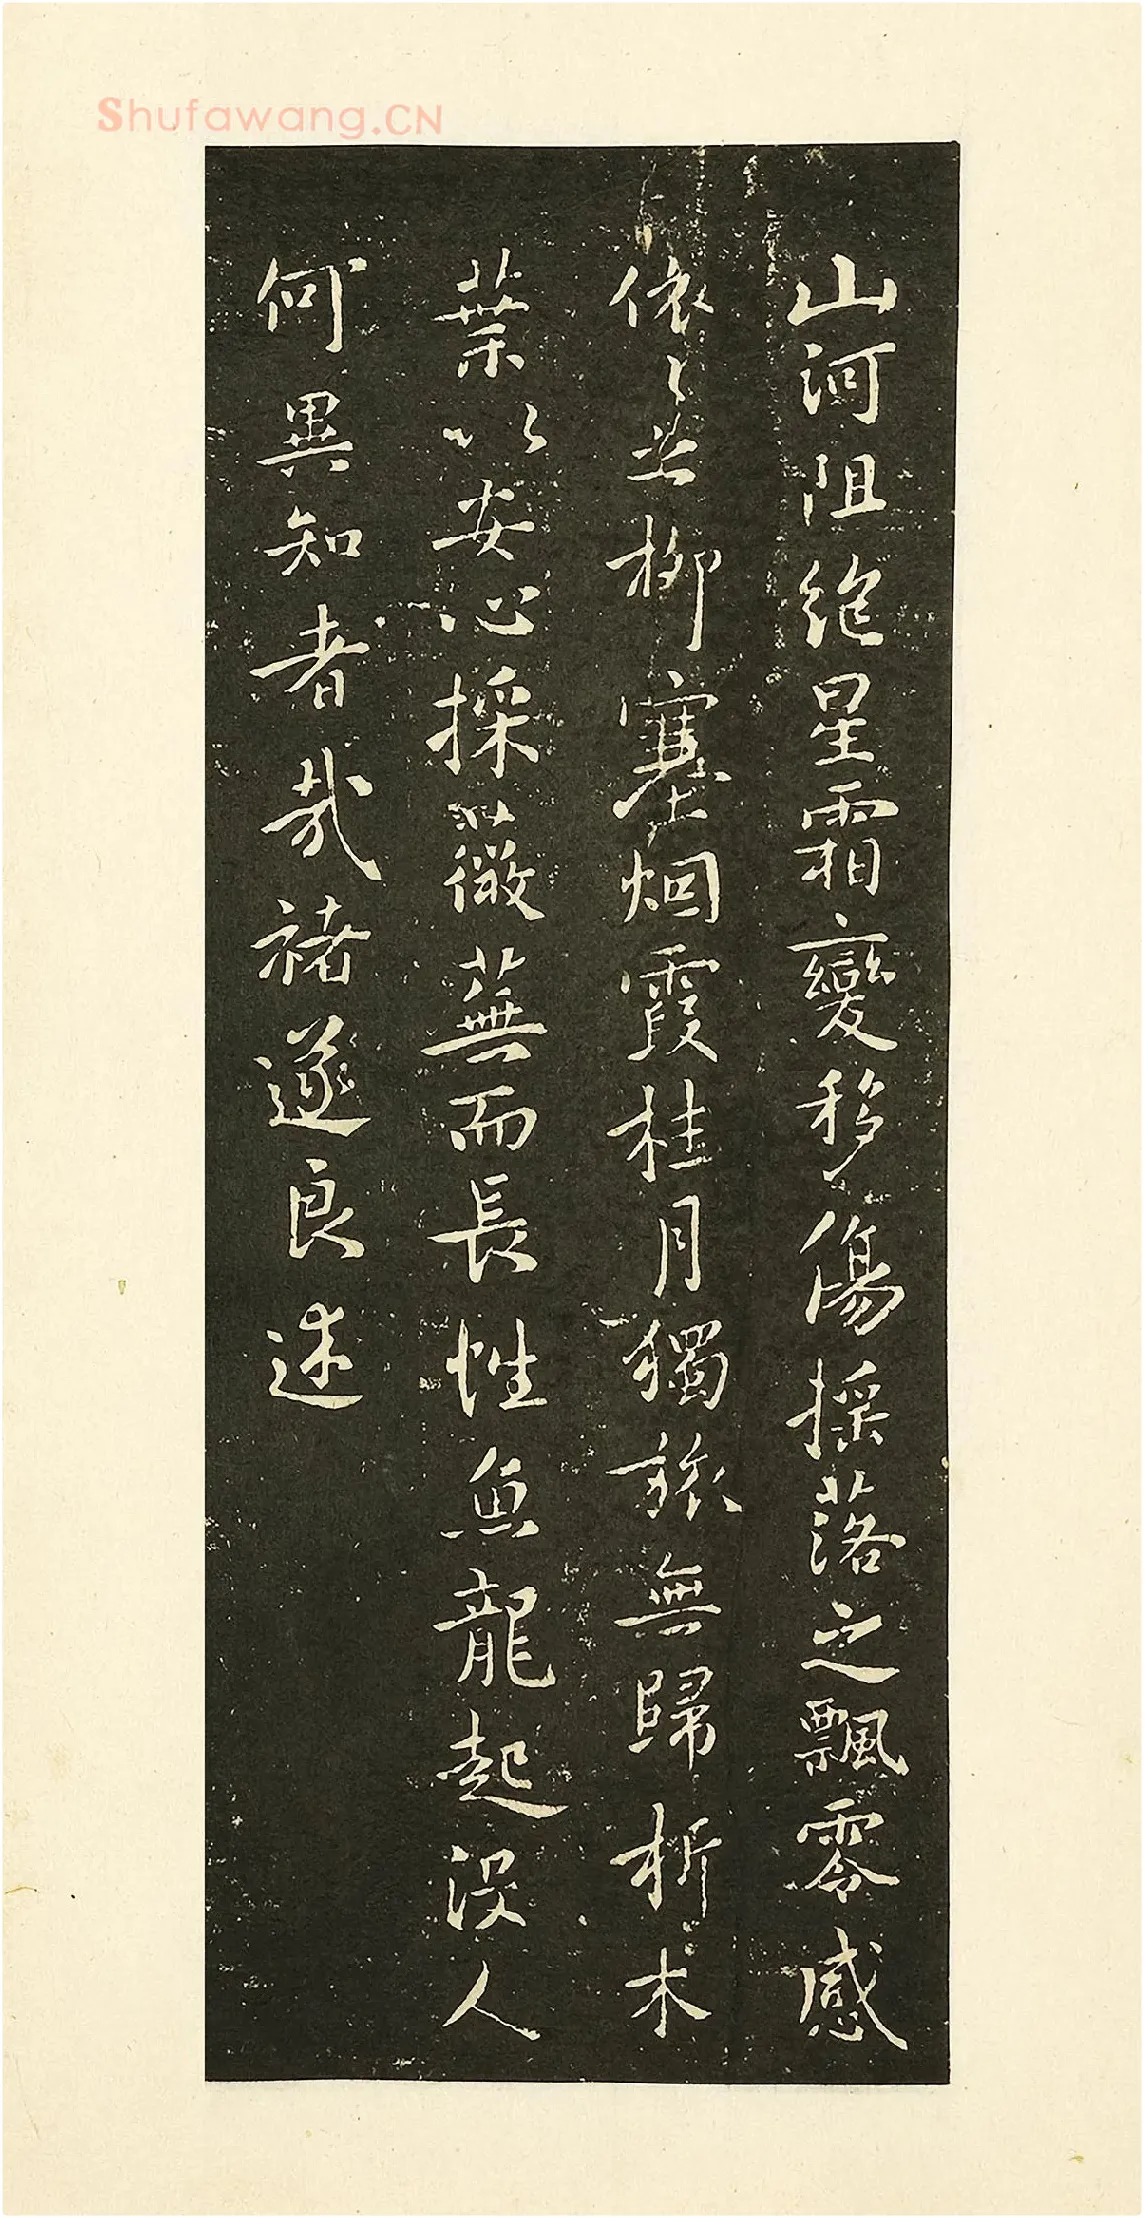 Shufawang.CN
山河阻絶星霜變移傷摇落之飄零感
依〻之柳塞烟霞桂月獨旅無歸折木
葉以安心採薇蕪而長性魚龍起没人
何異知者哉褚遂良述